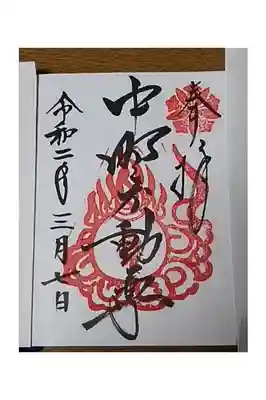 奉拝
中野不動尊
令和二年三月七日